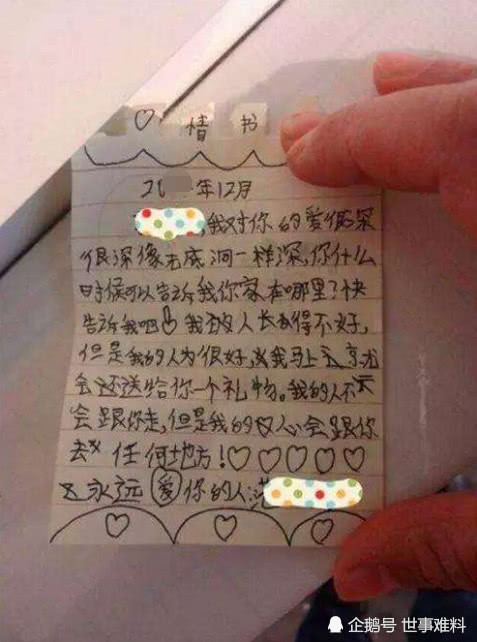 ♡ 情 书
2 年12月
我对你的爱很深
很深像无底洞一样深,你什么
时候可以告诉我你家在哪里?快
告诉我吧 我人长得不好,
但是我的人为很好,我马上
会还送给你一个礼物。我的人不
会跟你走,但是我的心会跟你
去 任何地方!♡♡♡♡♡
永远 爱 你的人:范
♡ ♡ ♡
企鹅号 世事难料